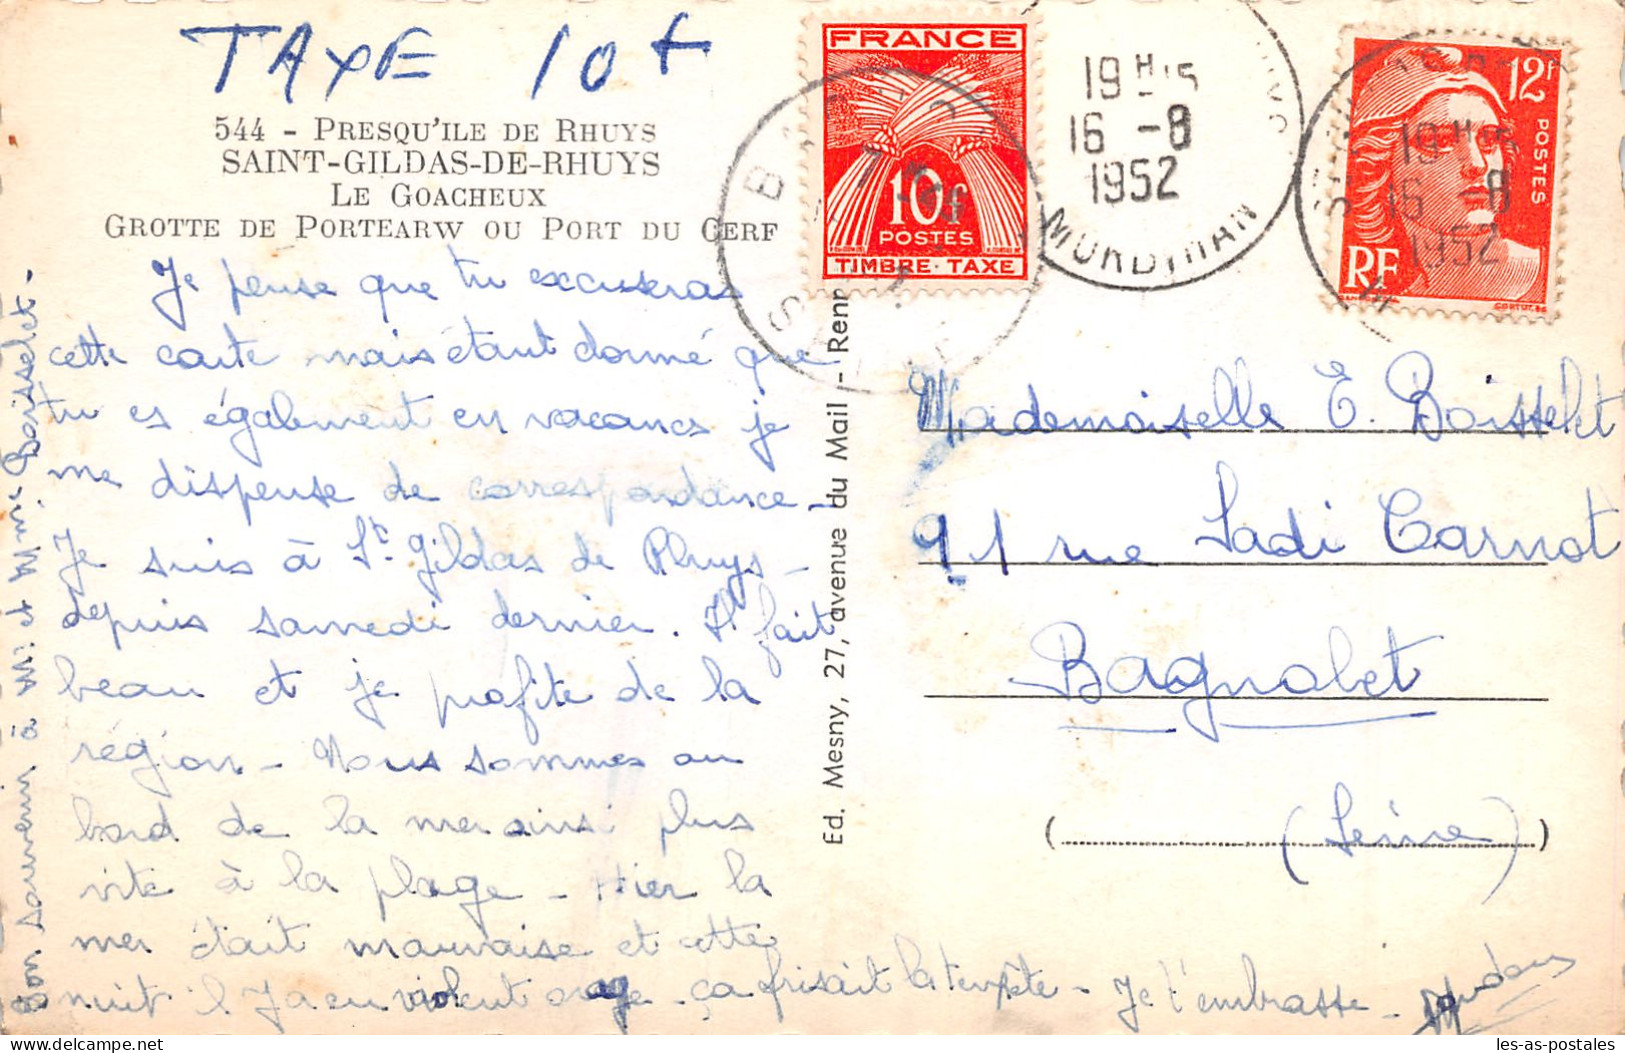 TAXE 10f
544 - PRESQU'ILE DE RHUYS
SAINT-GILDAS-DE-RHUYS
LE GOACHEUX
GROTTE DE PORTEARW OU PORT DU CERF
Je pense que tu excuseras
cette carte mais étant donné que
tu es également en vacances je
me dispense de correspondance -
Je suis à St. Gildas de Rhuys -
depuis samedi dernier. Il fait
beau et je profite de la
région - Nous sommes au
bord de la mer ainsi plus
vite à la plage - Hier la
mer était mauvaise et cette
nuit il y a eu violent orage - ça frisait la tempête - Je t'embrasse -
Bon souvenir à Mr et Mme Boisselet -
Ed. Mesny, 27, avenue du Mail - Renn
FRANCE
10f
POSTES
TIMBRE-TAXE
19H15
16 -8
1952
MORBIHAN
12f
POSTES
RF
19H15
16 -8
1952
Mademoiselle E. Boisselet
91 rue Sadi Carnot
Bagnolet
(Seine)
les-as-postales